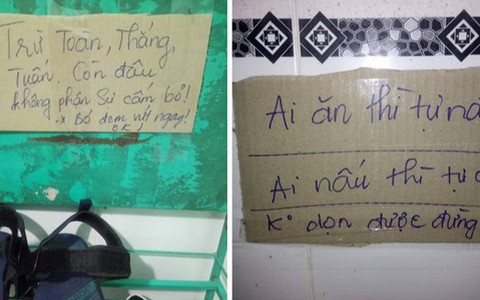 Trừ Toàn, Thắng,
Tuấn. Còn đâu
không phận Sự cấm bỏ!
Bỏ dọn vứt ngay!
OK!
Ai ăn thì tự
Ai nấu thì tự
K° dọn được đừng